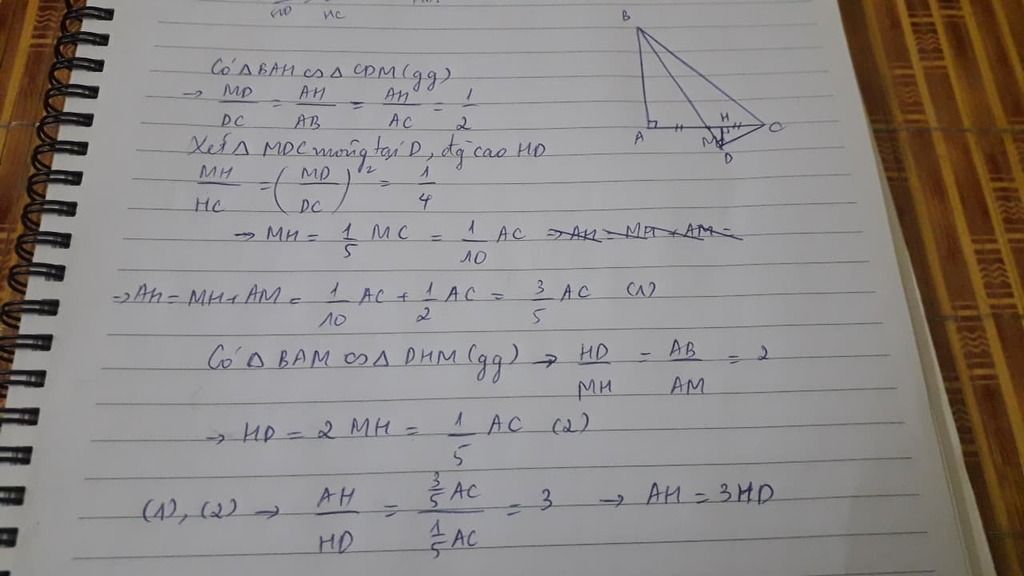 HC
B
A
H
C
M
D
Có ΔBAH ∽ Δ CDM (gg)
→ MD/DC = AH/AB = AH/AC = 1/2
Xét Δ MDC vuông tại D, đg cao HD
MH/HC = (MD/DC)² = 1/4
→ MH = 1/5 MC = 1/10 AC ⇒ AH = MH + AM =
⇒ AH = MH + AM = 1/10 AC + 1/2 AC = 3/5 AC (1)
Có Δ BAM ∽ Δ DHM (gg) → HD/MH = AB/AM = 2
→ HD = 2 MH = 1/5 AC (2)
(1), (2) → AH/HD = 3/5 AC / 1/5 AC = 3 → AH = 3HD